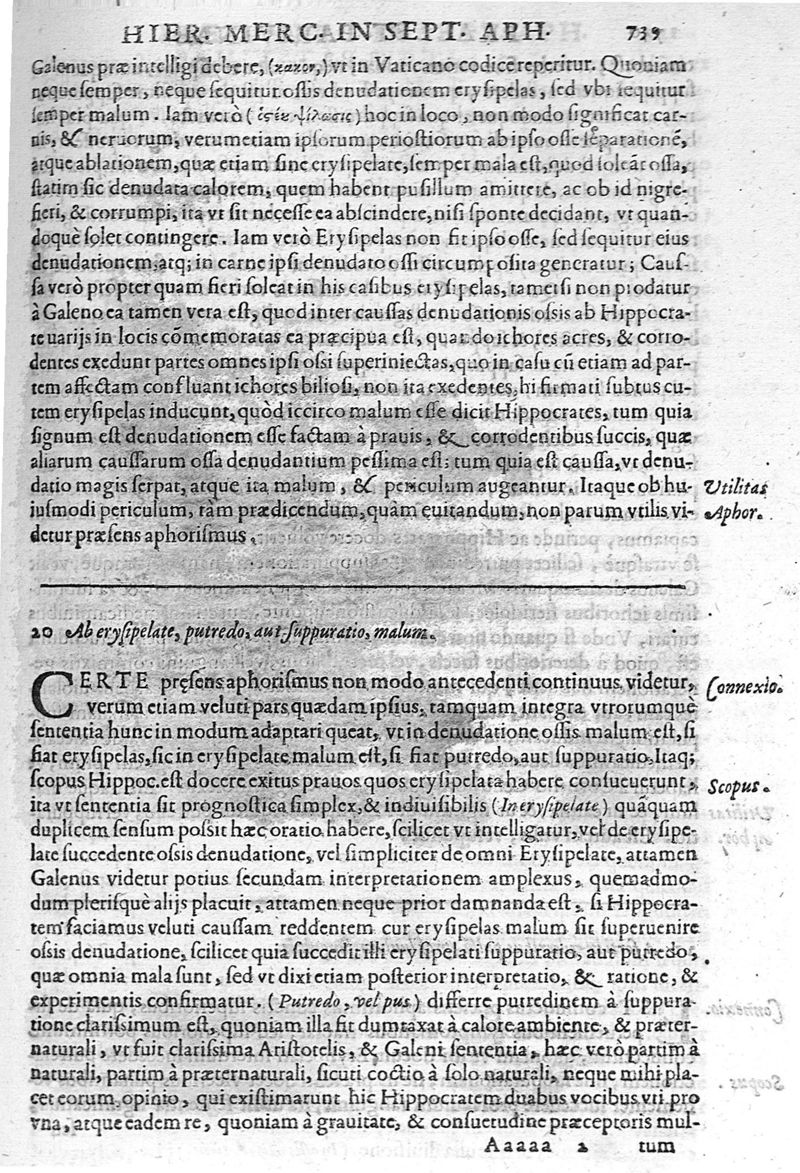 HIER. MERC. IN SEPT. APH. 739
Galenus præintelligi debere, (κακον,) vt in Vaticano codice reperitur. Quoniam
neque semper, neque sequitur ossis denudationem erysipelas, sed vbi sequitur
semper malum. Iam verò (ὀστέου ψίλωσις) hoc in loco, non modo significat car-
nis, & neruorum, verumetiam ipsorum periostiorum ab ipso osse separationẽ,
atque ablationem, quæ etiam sine erysipelate, semper mala est, quod soleãt ossa,
statim sic denudata calorem, quem habent pusillum amittere, ac ob id nigre-
fieri, & corrumpi, ita vt sit necesse ea abscindere, nisi sponte decidant, vt quan-
doquè solet contingere. Iam verò Erysipelas non fit ipso osse, sed sequitur eius
denudationem, atq; in carne ipsi denudato ossi circumposita generatur; Caus-
sa verò propter quam fieri soleat in his casibus erysipelas, tametsi non prodatur
à Galeno ea tamen vera est, quod inter caussas denudationis ossis ab Hippocra-
te uarijs in locis cõmemoratas ea præcipua est, quando ichores acres, & corro-
dentes exedunt partes omnes ipsi ossi superiniectas, quo in casu cũ etiam ad par-
tem affectam confluant ichores biliosi, non ita exedentes, hi firmati subtus cu-
tem erysipelas inducunt, quòd iccirco malum esse dicit Hippocrates, tum quia
signum est denudationem esse factam à prauis, & corrodentibus succis, quæ
aliarum caussarum ossa denudantium pessima est: tum quia est caussa, vt denu-
datio magis serpat, atque ita malum, & periculum augeantur. Itaque ob hu-
iusmodi periculum, tàm prædicendum, quàm euitandum, non parum vtilis vi-
detur præsens aphorismus.
Vtilitas
Aphor.
20 Ab erysipelate, putredo, aut suppuratio, malum.
CERTE pręsens aphorismus non modo antecedenti continuus videtur,
verum etiam veluti pars quædam ipsius, tamquam integra vtrorumquè
sententia hunc in modum adaptari queat, vt in denudatione ossis malum est, si
fiat erysipelas, sic in erysipelate malum est, si fiat putredo, aut suppuratio. Itaq;
scopus Hippoc. est docere exitus prauos quos erysipelata habere consueuerunt,
ita vt sententia sit prognostica simplex, & indiuisibilis (In erysipelate) quãquam
duplicem sensum possit hæc oratio habere, scilicet vt intelligatur, vel de erysipe-
late succedente ossis denudatione, vel simpliciter de omni Erysipelate, attamen
Galenus videtur potius secundam interpretationem amplexus, quemadmo-
dum plerisquè alijs placuit, attamen neque prior damnanda est, si Hippocra-
tem faciamus veluti caussam reddentem cur erysipelas malum sit superuenire
ossis denudatione, scilicet quia succedit illi erysipelati suppuratio, aut putredo,
quæ omnia mala sunt, sed vt dixi etiam posterior interpretatio, & ratione, &
experimentis confirmatur. (Putredo, vel pus) differre putredinem à suppura-
tione clarissimum est, quoniam illa fit dumtaxat à calore ambiente, & præter-
naturali, vt fuit clarissima Aristotelis, & Galeni sententia, hæc verò partim à
naturali, partim à præternaturali, sicuti coctio à solo naturali, neque mihi pla-
cet eorum opinio, qui existimarunt hic Hippocratem duabus vocibus vti pro
vna, atque eadem re, quoniam à grauitate, & consuetudine præceptoris mul-
Connexio.
Scopus.
Aaaaa 2 tum